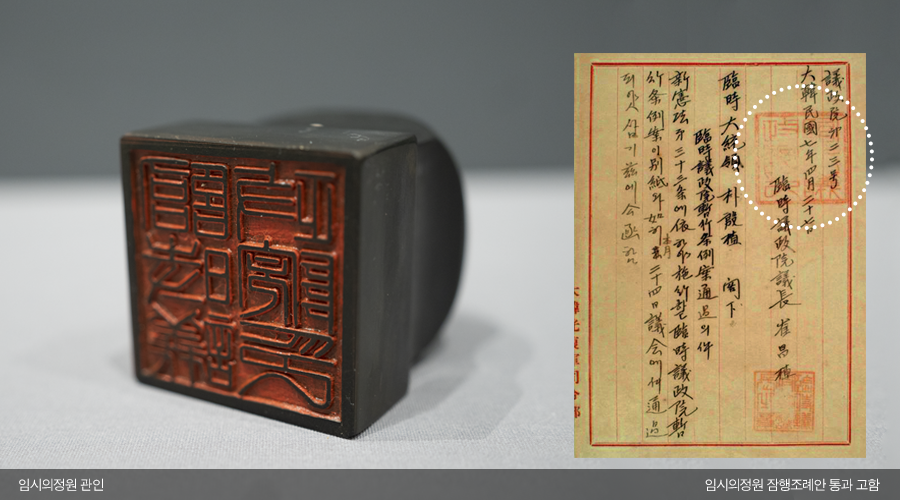 議政院㐧二三号
大韓民國七年四月二十七
臨時議政院議長 崔昌植
臨時大統領 朴殷植 閣下
臨時議政院暫行条例案通過의件
新憲法㐧三十三条에依하야施行할臨時議政院暫
行条例案이別紙와如히本月二十四日議会에서通過
되얏삽기玆에
임시의정원 관인
임시의정원 잠행조례안 통과 고함